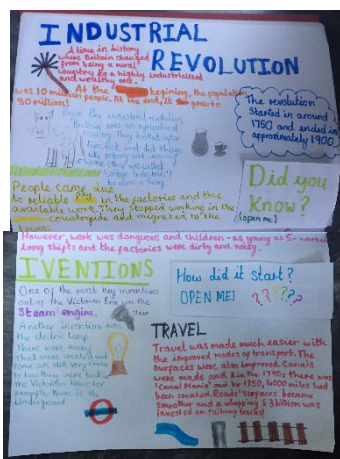 INDUSTRIAL
REVOLUTION
A time in history
where Britain changed
from being a rural
country to a highly industrialised
and wealthy one.
At the begining, the population
was 10 million people. At the end, it grew to
30 million!
The revolution
started in around
1750 and ended in
approximately 1900.
Before the industrial revolution,
Britain was an agricultural
country. They looked after
livestock and did things
like pottery and weaving
at home. (This was called
'cottage industries')
to earn a living.
Did you
know?
(open me!)
People came due
to reliable in the factories and the
available work. They stopped working in the
countryside and migrated to the
towns.
However, work was dangerous and children - as young as 5 - worked
long shifts and the factories were dirty and noisy.
IVENTIONS
One of the most key inventions
out of the Victorian Era was the
Steam engine.
Steam
Another invention was
the electric lamp.
There were many
that were invented and
some are still very similar
to how they were back in
the Victorian times, for
example, there is the
Underground.
How did it start?
OPEN ME! ??????
TRAVEL
Travel was made much easier with
the improved modes of transport. The
surfaces were also improved. Canals
were made and, in the 1790s there was
'Canal Mania' and by 1850, 4000 miles had
been created. Roads' surfaces became
smoother and a whopping £3 billion was
invested on railway tracks!